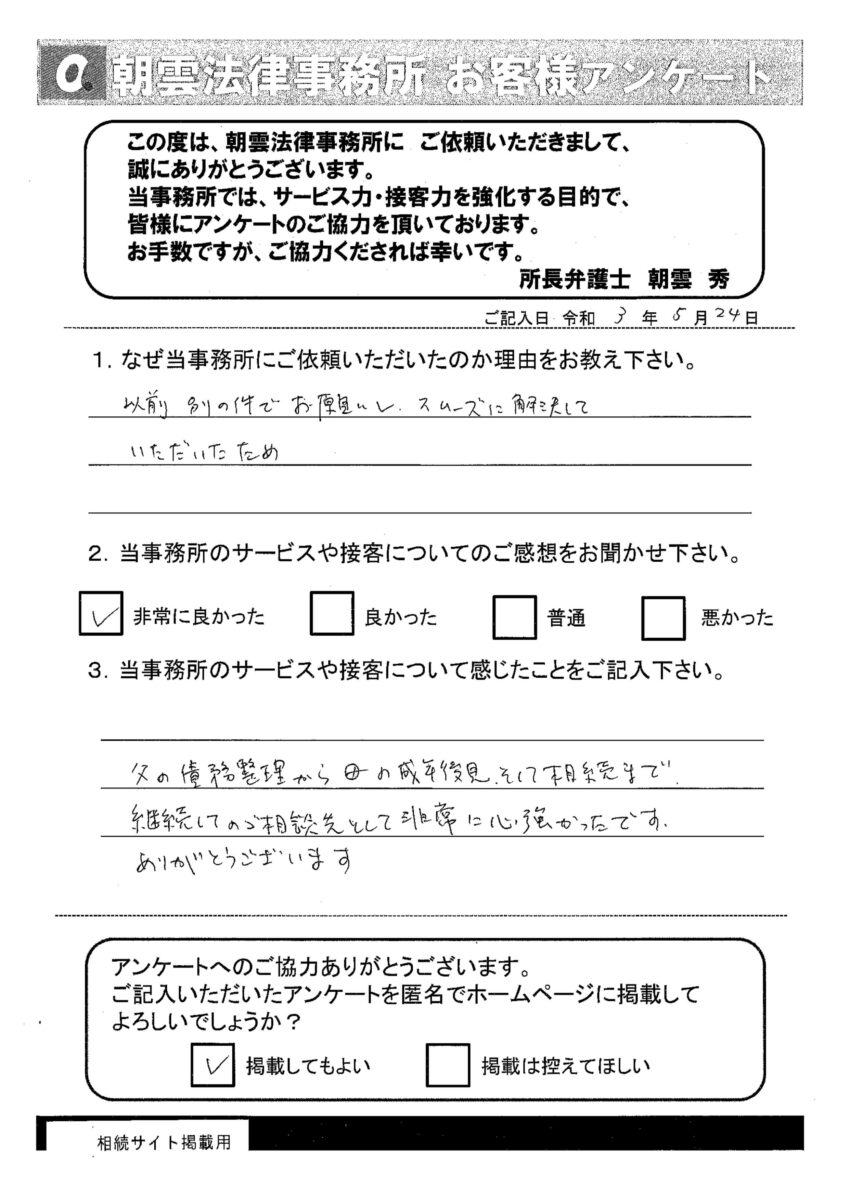 a. 朝雲法律事務所 お客様アンケート
この度は、朝雲法律事務所に ご依頼いただきまして、
誠にありがとうございます。
当事務所では、サービス力・接客力を強化する目的で、
皆様にアンケートのご協力を頂いております。
お手数ですが、ご協力くだされば幸いです。
所長弁護士 朝雲 秀
ご記入日 令和 3 年 5 月 24 日
1. なぜ当事務所にご依頼いただいたのか理由をお教え下さい。
以前 別の件で お願いし、スムーズに解決して
いただいたため
2. 当事務所のサービスや接客についてのご感想をお聞かせ下さい。
✓ 非常に良かった 良かった 普通 悪かった
3. 当事務所のサービスや接客について感じたことをご記入下さい。
父の債務整理から母の成年後見、そして相続まで、
継続してのご相談先として非常に心強かったです。
ありがとうございます
アンケートへのご協力ありがとうございます。
ご記入いただいたアンケートを匿名でホームページに掲載して
よろしいでしょうか?
✓ 掲載してもよい 掲載は控えてほしい
相続サイト掲載用